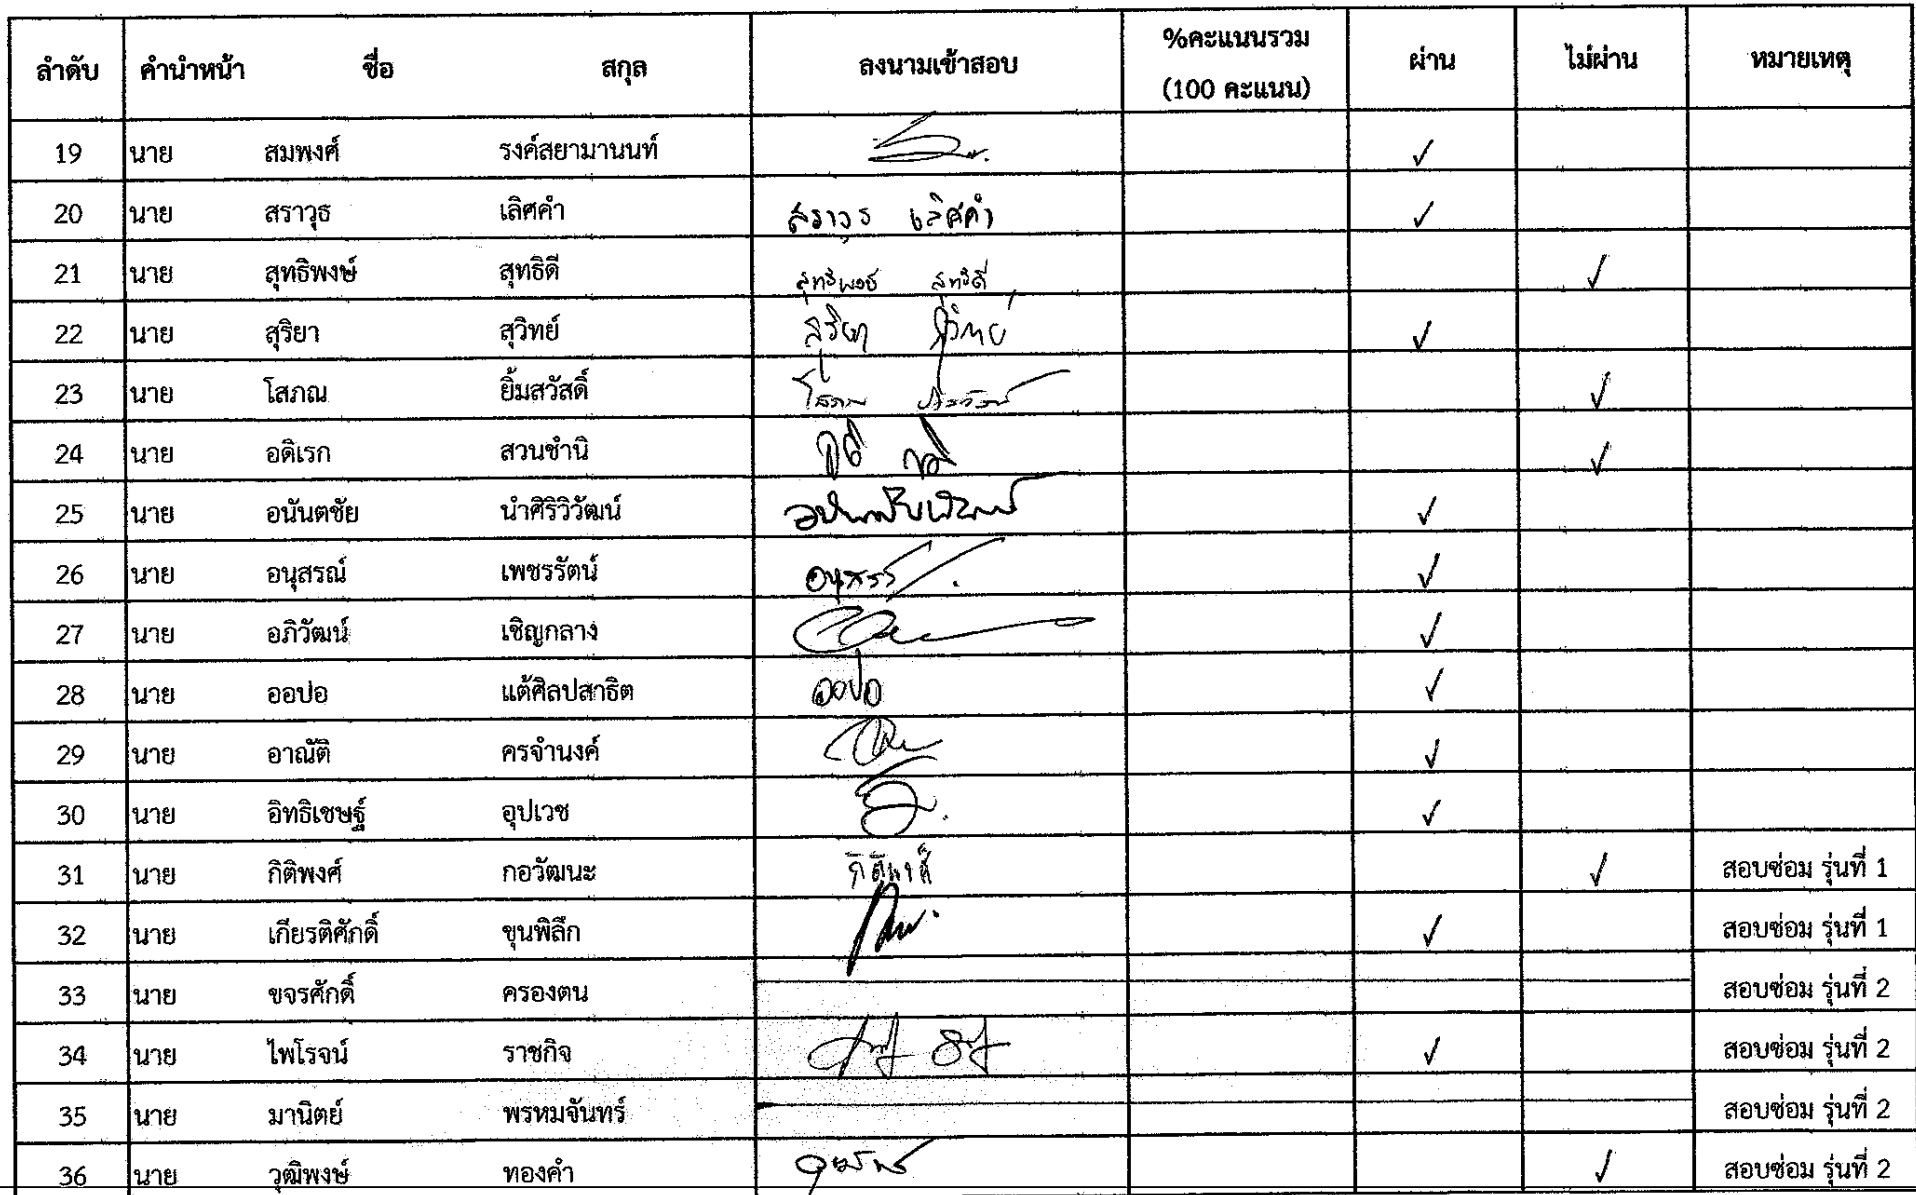 ลำดับ คำนำหน้า ชื่อ สกุล ลงนามเข้าสอบ %คะแนนรวม (100 คะแนน) ผ่าน ไม่ผ่าน หมายเหตุ
19 นาย สมพงศ์ รงค์สยามานนท์ ✓
20 นาย สราวุธ เลิศคำ สราวุธ เลิศคำ ✓
21 นาย สุทธิพงษ์ สุทธิดี สุทธิพงษ์ สุทธิดี ✓
22 นาย สุริยา สุวิทย์ สุริยา สุวิทย์ ✓
23 นาย โสภณ ยิ้มสวัสดิ์ โสภณ ✓
24 นาย อดิเรก สวนชำนิ ✓
25 นาย อนันตชัย นำศิริวิวัฒน์ ✓
26 นาย อนุสรณ์ เพชรรัตน์ ✓
27 นาย อภิวัฒน์ เชิญกลาง ✓
28 นาย ออปอ แต้ศิลปสาธิต ออปอ ✓
29 นาย อาณัติ ครจำนงค์ ✓
30 นาย อิทธิเชษฐ์ อุปเวช ✓
31 นาย กิติพงศ์ กอวัฒนะ กิติพงศ์ ✓ สอบซ่อม รุ่นที่ 1
32 นาย เกียรติศักดิ์ ขุนพิลึก ✓ สอบซ่อม รุ่นที่ 1
33 นาย ขจรศักดิ์ ครองตน สอบซ่อม รุ่นที่ 2
34 นาย ไพโรจน์ ราชกิจ ✓ สอบซ่อม รุ่นที่ 2
35 นาย มานิตย์ พรหมจันทร์ สอบซ่อม รุ่นที่ 2
36 นาย วุฒิพงษ์ ทองคำ ✓ สอบซ่อม รุ่นที่ 2